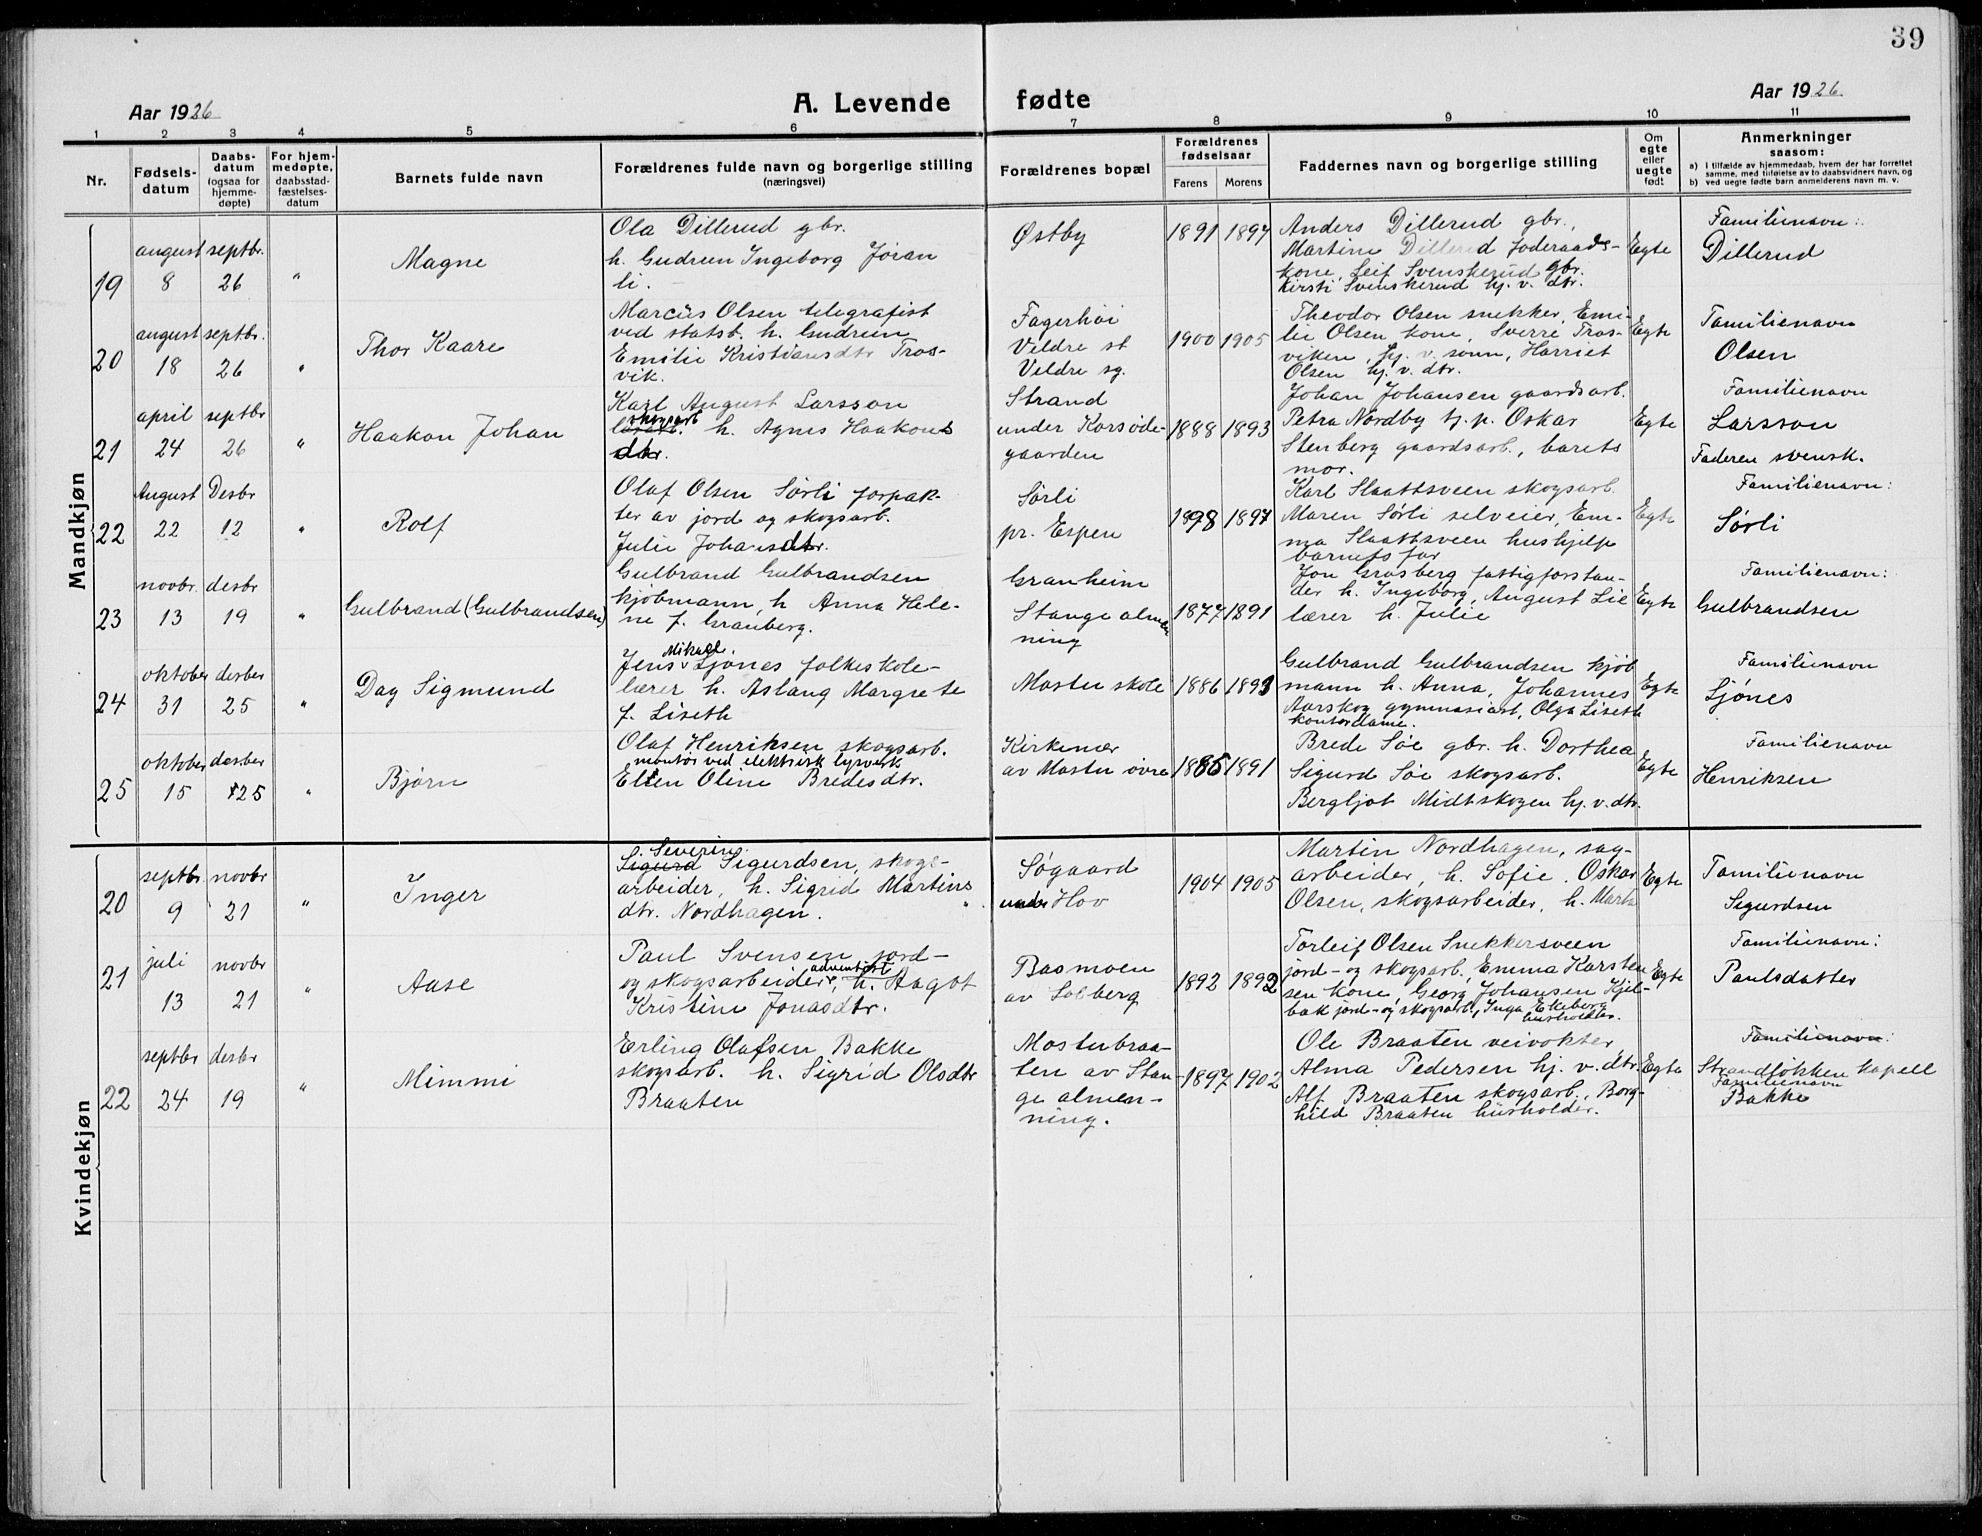 39
Aar 1926
A. Levende fødte
Aar 1926
1 2 3 4 5 6 7 8 9 10 11
Nr.
Fødsels-
datum
Daabs-
datum
(ogsaa for
hjemme-
døpte)
For hjem-
medøpte,
daabsstad-
fæstelses-
datum
Barnets fulde navn
Forældrenes fulde navn og borgerlige stilling
(næringsvei)
Forældrenes bopæl
Forældrenes
fødselsaar
Farens Morens
Faddernes navn og borgerlige stilling
Om
egte
eller
uegte
født
Anmerkninger
saasom:
a) I tilfælde av hjemmedaab, hvem der har forrettet
samme, med tilføielse av to daabsvidners navn, og
b) ved uegte fødte barn anmelderens navn m. v.
Mandkjøn
19
august
8
septbr.
26
"
Magne
Ola Dillerud gbr.
h. Gudrun Ingeborg Jøran
li.
Østby
1891 1897
Anders Dillerud gbr.,
Martine Dillerud foderaads-
kone, Leif Svenskerud gbr.
Kirsti Svenskerud hj. v. dtr.
Egte
Familienavn:
Dillerud
20
august
18
septbr.
26
"
Thor Kaare
Marcus Olsen telegrafist
ved statsb. h. Gudrun
Emilie Kristiansdtr Tros-
vik.
Fagerhøi
Veldre st
Veldre sg.
1900 1905
Theodor Olsen snekker, Emi-
lie Olsen kone, Sverre Tros-
viken, hj. v. sønn, Harriet
Olsen hj. v. dtr.
Egte
Familienavn
Olsen
21
april
24
septbr
26
"
Haakon Johan
Karl August Larsson
skogsarb
h. Agnes Haakons
dtr.
Strand
under Korsøde-
gaarden
1888 1893
Johan Johansen gaardsarb.
Petra Nordby tj. p. Oskar
Stenberg gaardsarb., barets
mor.
Egte
Familienavn
Larsson
Faderen svensk.
22
August
22
Desbr
12
"
Rolf
Olaf Olsen Sørli forpak-
ter av jord og skogsarb.
Julie Johansdtr.
Sørli
pr. Espen
1898 1897
Karl Slaattsveen skogsarb.
Maren Sørli selveier, Em-
ma Slaattsveen hushjelp
barnets far
Egte
Familienavn:
Sørli
23
novbr.
13
desbr
19
"
Gulbrand (Gulbrandsen)
Gulbrand Gulbrandsen
kjøbmann, h Anna Hele-
ne f. Granberg.
Granheim
Stange almen
ning
1877 1891
Jon Grosberg fattigforstan-
der h. Ingeborg, August Lie
lærer h. Julie
Egte
Familienavn:
Gulbrandsen
24
oktober
31
desber
25
"
Dag Sigmund
Mikael.
Jens Sjønes folkeskole-
lærer h. Aslaug Margrete
f. Liseth
Moster skole
1886 1893
Gulbrand Gulbrandsen kjøb
mann h. Anna, Johannes
Aarskog gymnasiast, Olga Liseth
kontordame.
Egte
Familienavn
Sjønes
25
oktober
15
desber
25
"
Bjørn
Olaf Henriksen skogsarb.
montør ved elektrisk lysverk
Ellen Oline Bredesdtr.
Kirkenær
av Moster øvre
1885 1891
Brede Søe gbr. h. Dorthea
Sigurd Søe skogsarb.
Bergljot Midtskogen hj. v. dtr.
Egte
Familienavn
Henriksen
Kvindekjøn
20
septbr
9
novbr
21
"
Inger
Severin
Sigurd Sigurdsen, skogs-
arbeider, h. Sigrid Martins
dtr. Nordhagen.
Søgaard
under Hov
1904 1905
Martin Nordhagen, sag-
arbeider, h. Sofie. Oskar
Olsen, skogsarbeider, h. Marta
Egte
Familienavn
Sigurdsen
21
juli
13
novbr
21
"
Aase
Paul Svensen jord-
og skogsarbeider, adventist h. Aagot
Kristine Jonasdtr.
Basmoen
av Solberg
1892 1892
Torleif Olsen Snekkersveen
jord- og skogsarb., Emma Karsten
sen kone, Georg Johansen Kjel-
bak jord- og skogsarb., Inga Ekeberg
husholder.
Egte
Familienavn:
Paulsdatter
22
septbr
24
desbr
19
"
Mimmi
Erling Olafsen Bakke
skogsarb. h. Sigrid Olsdtr
Braaten
Mosterbraa-
ten av Stan-
ge almen-
ning.
1897 1902
Ole Braaten veivokter,
Alma Pedersen hj. v. dtr
Alf Braaten skogsarb., Borg-
hild Braaten husholder.
Egte
Familienavn:
Strandløkken kapell
Familienavn
Bakke